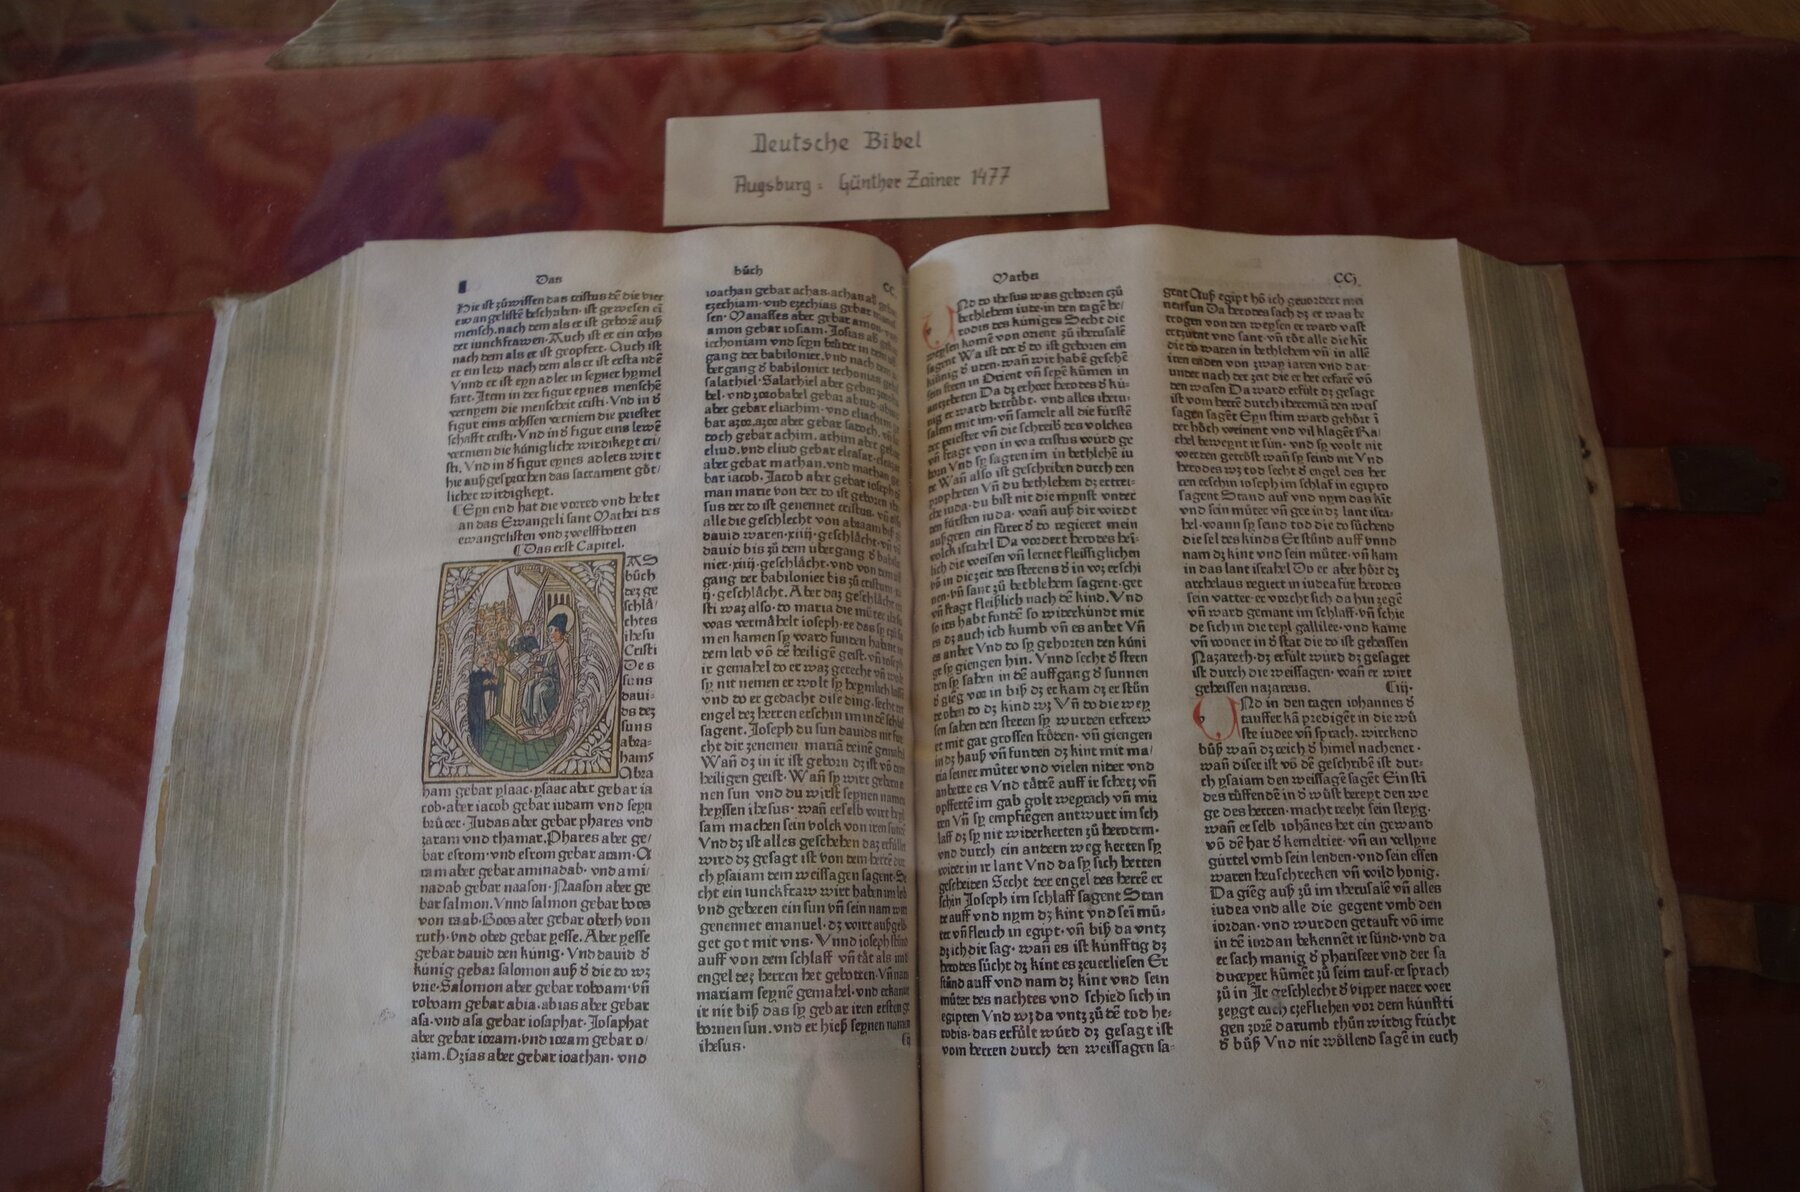 Deutsche Bibel
Augsburg: Günther Zainer 1477
Das
bůch
CC
Hie ist zůwissen das cristus dē die vier
ewangelistē beschaben. ist gewesen eī
mensch. nach dem als er ist geborē auß
der iunckfrawen. Auch ist er ein ochs
nach dem als er ist geopfert. Auch ist
er ein lew nach dem als er ist erstandē
Vnnd er ist eyn adler in seyner hymel
fart. Item in der figur eynes menschē
vernyem die menscheit cristi. Vnd in d̕
figur eins ochssen verniem die priester
schafft cristi. Vnd in d̕ figur eins lewē
verniem die künigliche wirdikeyt cri/
sti. Vnd in d̕ figur eynes adlers wirt
hie außgesprochen das sacrament göt/
licher wirdigkeyt.
¶ Eyn end hat die vorred vnd hebet
an das Ewangeli sant Mathei des
ewangelisten vnd zwelffbotten
¶ Das erst Capitel.
AS
bůch
dez ge
schlå/
chtes
ihesu
Cristi
Des
suns
daui-
ds dez
suns
abra-
hams
Abra
ham gebar ysaac. ysaac aber gebar ia
cob. aber iacob gebar iudam vnd seyn
brůder. Judas aber gebar phares vnd
zaram vnd thamar. Phares aber ge/
bar esrom. vnd esrom gebar aram. A
ram aber gebar aminadab. vnd ami
nadab gebar naason. Naason aber ge
bar salmon. Vnnd salmon gebar boos
von raab. Boos aber gebar obeth von
ruth. vnd obed gebar yesse. Aber yesse
gebar dauid den künig. Vnd dauid d̕
künig gebar salomon auß d̕ die do wz
vrie. Salomon aber gebar roboam. vn̄
roboam gebar abia. abias aber gebar
asa. vnd asa gebar iosaphat. Josaphat
aber gebar ioram. vnd ioram gebar o/
ziam. Ozias aber gebar ioathan. vnd
ioathan gebar achas. achas ab̕ gebar
ezechiam. vnd ezechias gebar manas
sen. Manasses aber gebar amon. vnd
amon gebar iosiam. Josias ab̕
iechoniam vnd seyn brüder in dem
gang der babilonier. vnd nach dem
bergang d̕ babilonier iechonias
salathiel. Salathiel aber gebar zoroba
bel. vnd zorobabel gebar abiud.
aber gebar eliachim. vnd eliachim
bar azor. azor aber gebar sadoch. vn̄
doch gebar achim. achim aber gebar
eliud. vnd eliud gebar eleasar. eleasar
aber gebar mathan. vnd mathan
bar iacob. Jacob aber gebar ioseph d̕
man marie von der do ist geboren ihe
sus der do ist genennet cristus. vn̄
alle die geschlecht von abraam biß
dauid waren. xiiij. geschlächt. vn̄
dauid bis zů dem übergang d̕ babilo
nier. xiiij. geschlächt. vnd von dem
gang der babilonier bis zů cristum.
ij. geschlächt. Aber daz geschlächt
sti waz also. do maria die můter
was vermåhelt ioseph. ee das sy
men kamen sy ward funden habent
dem leib vō dē heiligē geist. vn̄ ioseph
ir gemahel do er waz gerecht vn̄ wolt
sy nit nemen er wolt sy heymlich
vnd do er gedacht dise ding. secht der
engel dez herren erschin im in dē schlaff
sagent. Joseph du sun dauids nit
cht dir zenemen mariā deinē gemahel
Wan̄ dz in ir ist geborn dz ist vō dem
heiligen geist. Wan̄ sy wirt geberen
nen sun vnd du wirst seynen namen
heyssen ihesus. wan̄ er selb wirt
sam machen sein volck von iren sünden
Vnd dz ist alles geschehen daz erfüllet
wird dz gesagt ist von dem herrē dur
ch ysaiam dem weissagen sagent. Se
cht ein iunckfraw wirt haben im leib
vnd geberen ein sun vn̄ sein nam wirt
genennet emanuel. dz wirt
get got mit vns. Vnnd ioseph stůnd
auff von dem schlaff vn̄ tåt als im
engel dez herren het gebotten. Vn̄ nam
mariam seynē gemahel. vnd erkant
ir nit biß das sy gebar iren ersten ge
bornen sun. vnd er hieß seynen namen
ihesus.
Matheus
CCj.
VNd do ihesus was geboren czů
bethlehem iude. in den tagē he/
rodis des küniges Secht die
weysen komē von orient zů iherusalē
sagent Wa ist der d̕ do ist geboren ein
künig d̕ uden. wan̄ wir habē gesehē
sein stern in Orient vn̄ seyē kůmen in
anzebeten Da dz erhort herodes d̕ kü-
nig er ward betrübt. vnd alles iheru-
salem mit im. vn̄ samelt all die fürstē
der priester vn̄ die schreib des volckes
vn̄ fragt von in wa cristus würd ge
born Vnd sy sagten im in bethlehē iu
de Wan̄ also ist geschriben durch den
propheten Vn̄ du bethlehem dz ertrei-
che iuda. du bist nit die mynst vnter
den fürsten iuda. wan̄ auß dir wirdt
außgeen ein fürer d̕ do regieret mein
volck israhel Da vordert herodes hei-
lich die weisen vn̄ lernet fleissiglichen
vō in die zeit des sterens d̕ in wz erschi
nen. vn̄ sant zů bethlehem sagent. get
vn̄ fragt fleißlich nach dē kind. Vnd
so irs habt fundē so widerkündt mir
es dz auch ich kumb vn̄ es anbet Vn̄
es anbet Vnd do sy gehorten den küni
ge sy giengen hin. Vnnd secht d̕ stern
den sy sahen in dē auffgang d̕ sunnen
d̕ giēg vor in biß dz er kam dz er stůn
de oben do dz kind wz Vn̄ do die wey
sen sahen den steren sy wurden erfrew
et mit gar grossen fröden. vn̄ giengen
in dz hauß vn̄ funden dz kint mit ma/
ria seiner můter vnd vielen nider vnd
anbette es Vnd tåttē auff ir schetz vn̄
opffertē im gab golt weyrach vn̄ mir
ren Vn̄ sy empfiēgen antwurt im sch
laff dz sy nit widerkerten zů herodem.
vnd durch ein andern weg kerten sy
wider in ir lant Vnd da sy sich hetten
gescheiden Secht der engel des herrē er
schin Joseph im schlaff sagent Stan
de auff vnd nym dz kint vnd sei mů-
ter vn̄ fleuch in egipt. vn̄ biß da vntz
dz ich dir sag. wan̄ es ist künfftig dz
herodes sůcht dz kint es zeuerliesen Er
stůnd auff vnd nam dz kint vnd sein
můter des nachtes vnd schied sich in
egipten Vnd wz da vntz zů dē tod he-
rodis. das erfült würd dz gesagt ist
vom herren durch den weissagen sa-
gent Auß egipt hō ich geuordert mei
nen sun Da herodes sach dz er was be
trogen von den weysen er ward vast
erzürnt vnd sant. vn̄ töt alle die kīt
die do waren in bethlehem vn̄ in allē
iren enden von zway iaren vnd dar-
under nach der zeit die er het erfarē vō
den weisen Da ward erfült dz gesagt
ist vom herrē durch iheremiā den weis
sagen sagēt Eyn stim ward gehört ī
der höch weinent und vil klagēt Ra/
chel beweynt ir sün. vnd sy wolt nit
werden getröst wan̄ sy seind nit Vnd
herodes wz tod secht d̕ engel des her
ren erschin ioseph im schlaf in egipto
sagent Stand auf vnd nym das kīt
vnd sein můter vn̄ gee in dz lant isra-
hel. wann sy seind tod die do sůchend
die sel des kinds Er stůnd auff vnnd
nam dz kint vnd sein můter. vn̄ kam
in das lant israhel Do er aber hört dz
archelaus regiert in iudea für herodes
sein vatter. er vorcht sich da hin zegē
vn̄ ward gemant im schlaff. vn̄ schie
de sich in die teyl gallilee. vnd kame
vn̄ wonet in d̕ stat die do ist geheissen
Nazareth. dz erfült würd dz gesaget
ist durch die weissagen. wan̄ er wirt
geheissen nazareus. ¶ iij.
VNd in den tagen iohannes d̕
tauffer kā predigēt in die wů
ste iudee vn̄ sprach. wirckend
bůß wan̄ dz reich d̕ himel nachenet.
wan̄ diser ist vō dē geschribē ist dur-
ch ysaiam den weissagē sagēt Ein sti
des růffendē in d̕ wůst bereyt den we
ge des herren. macht recht sein steyg.
wan̄ er selb iohānes het ein gewand
vō dē har d̕ kemeltier. vn̄ ein vellyne
gürtel vmb sein lenden. vnd sein essen
waren heuschrecken vn̄ wild honig.
Da giēg auß zů im iherusalē vn̄ alles
iudea vnd alle die gegent vmb den
iordan. vnd wurden getauft vō ime
in dē iordan bekennēt ir sünd. vnd da
er sach manig d̕ phariseer vnd der sa
duceyer kůmēt zů seim tauf. er sprach
zů in Ir geschlecht d̕ vipper nater wer
zeygt euch czefliehen vor dem künfti
gen zorē darumb thůn wirdig frücht
d̕ bůß Vnd nit wöllend sagē in euch